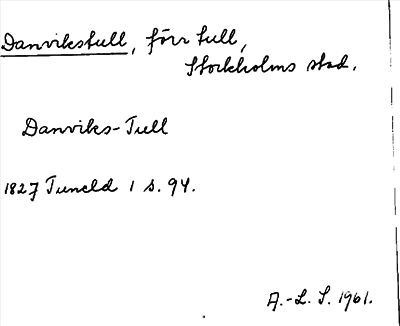 Danvikstull, förr tull,
Stockholms stad.
Danviks-Tull
1827 Tuneld 1 s. 94.
A.-L. S. 1961.